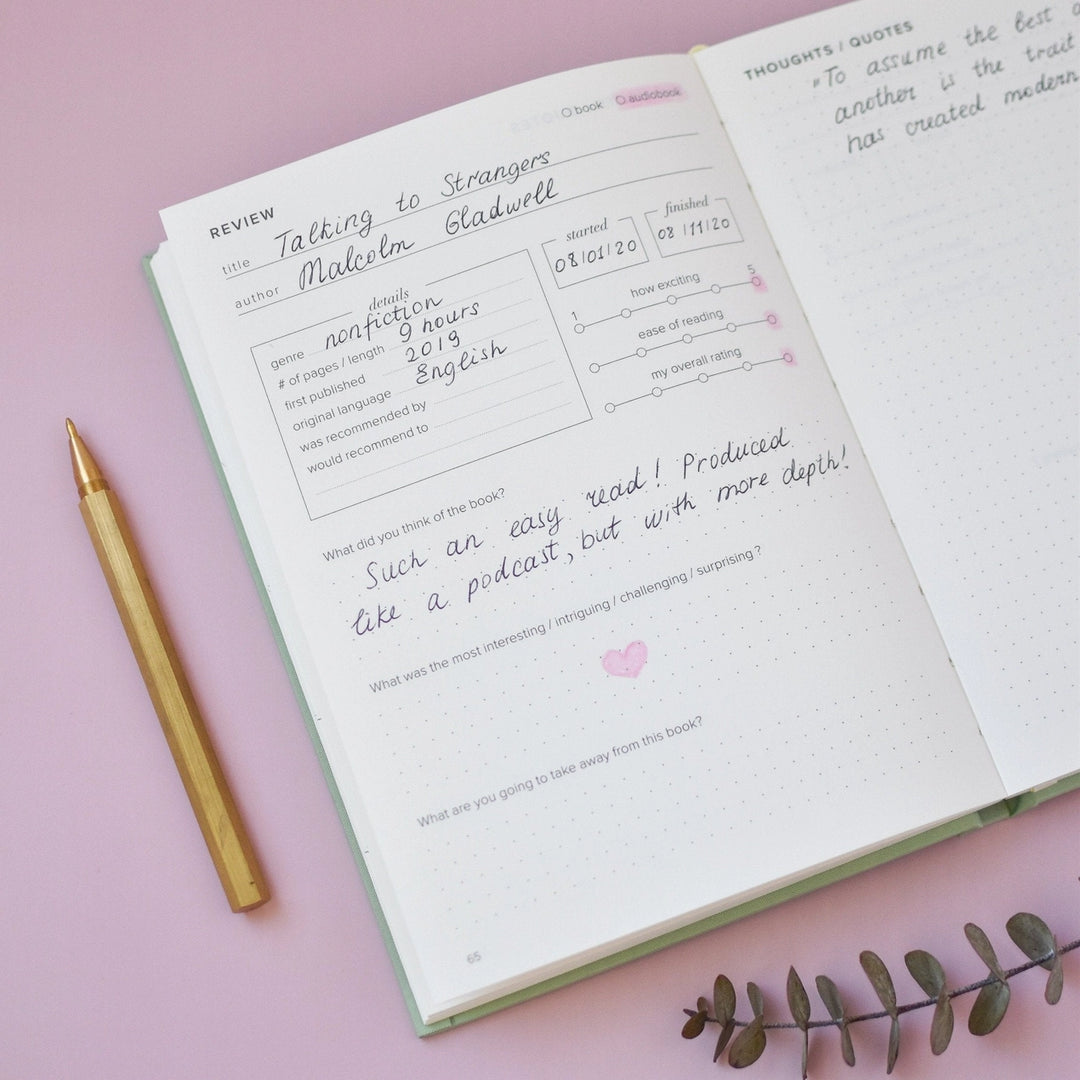 ○ book ○ audiobook
REVIEW
title Talking to Strangers
author Malcolm Gladwell
details
genre nonfiction
# of pages / length 9 hours
first published 2019
original language English
was recommended by
would recommend to
started
08/01/20
finished
08/11/20
how exciting
1
5
ease of reading
my overall rating
What did you think of the book?
Such an easy read! Produced
like a podcast, but with more depth!
What was the most interesting / intriguing / challenging / surprising?
What are you going to take away from this book?
65
THOUGHTS / QUOTES
"To assume the best
another is the trait
has created modern